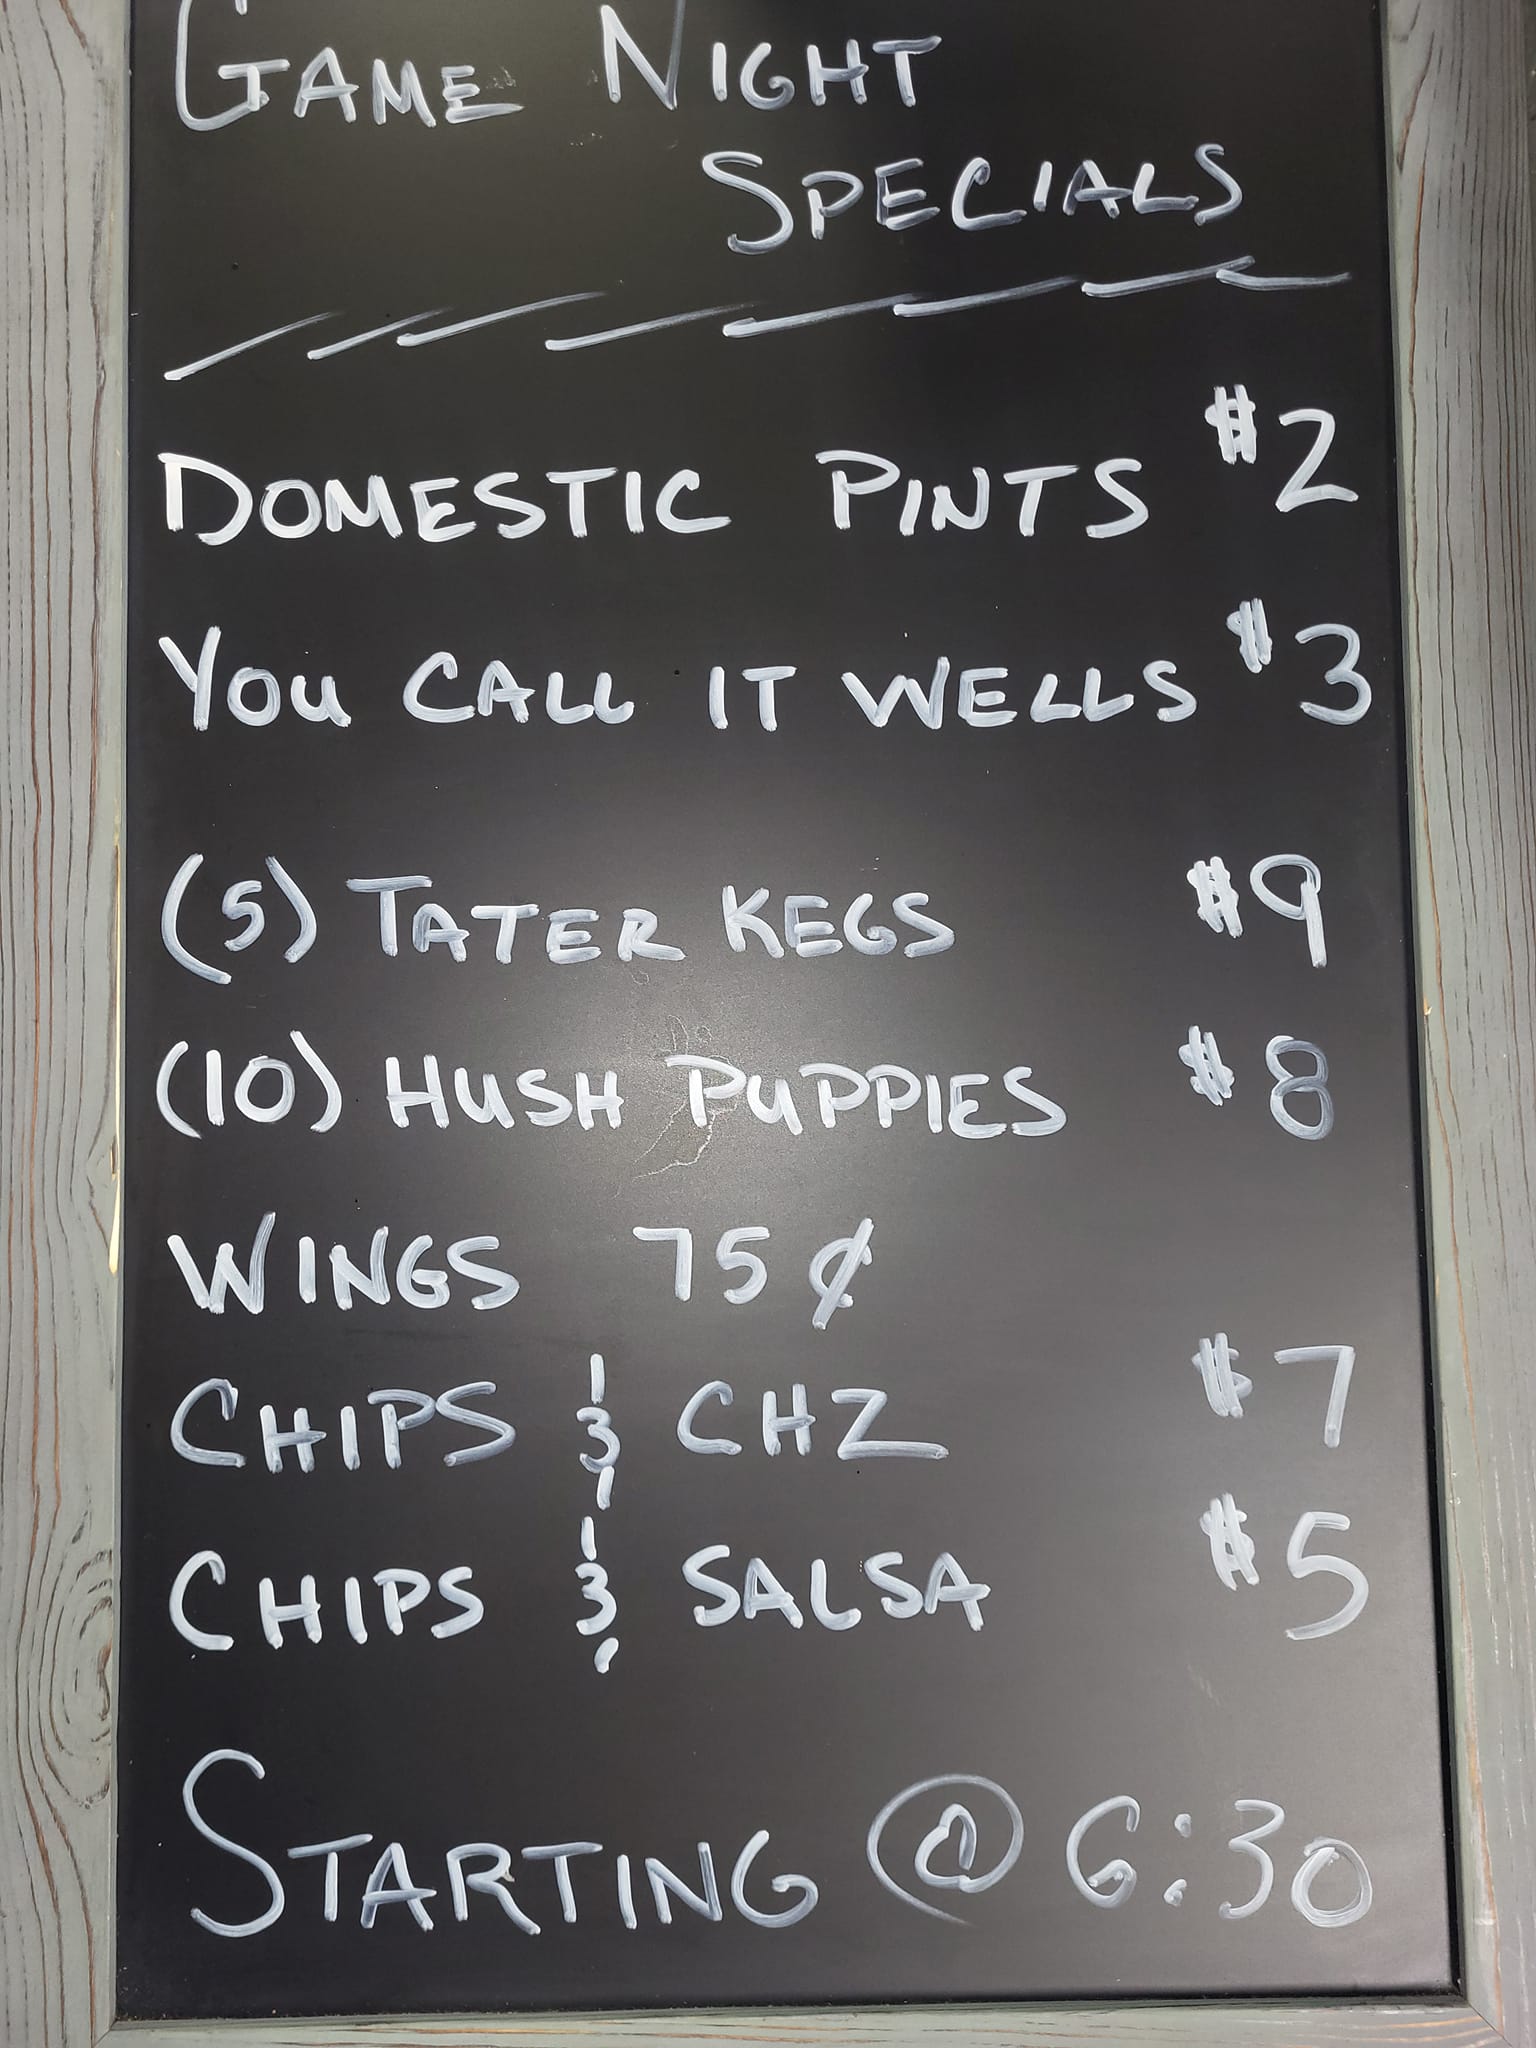 GAME NIGHT
SPECIALS
DOMESTIC PINTS $2
YOU CALL IT WELLS $3
(5) TATER KEGS $9
(10) HUSH PUPPIES $8
WINGS 75¢
CHIPS & CHZ $7
CHIPS & SALSA $5
STARTING @ 6:30